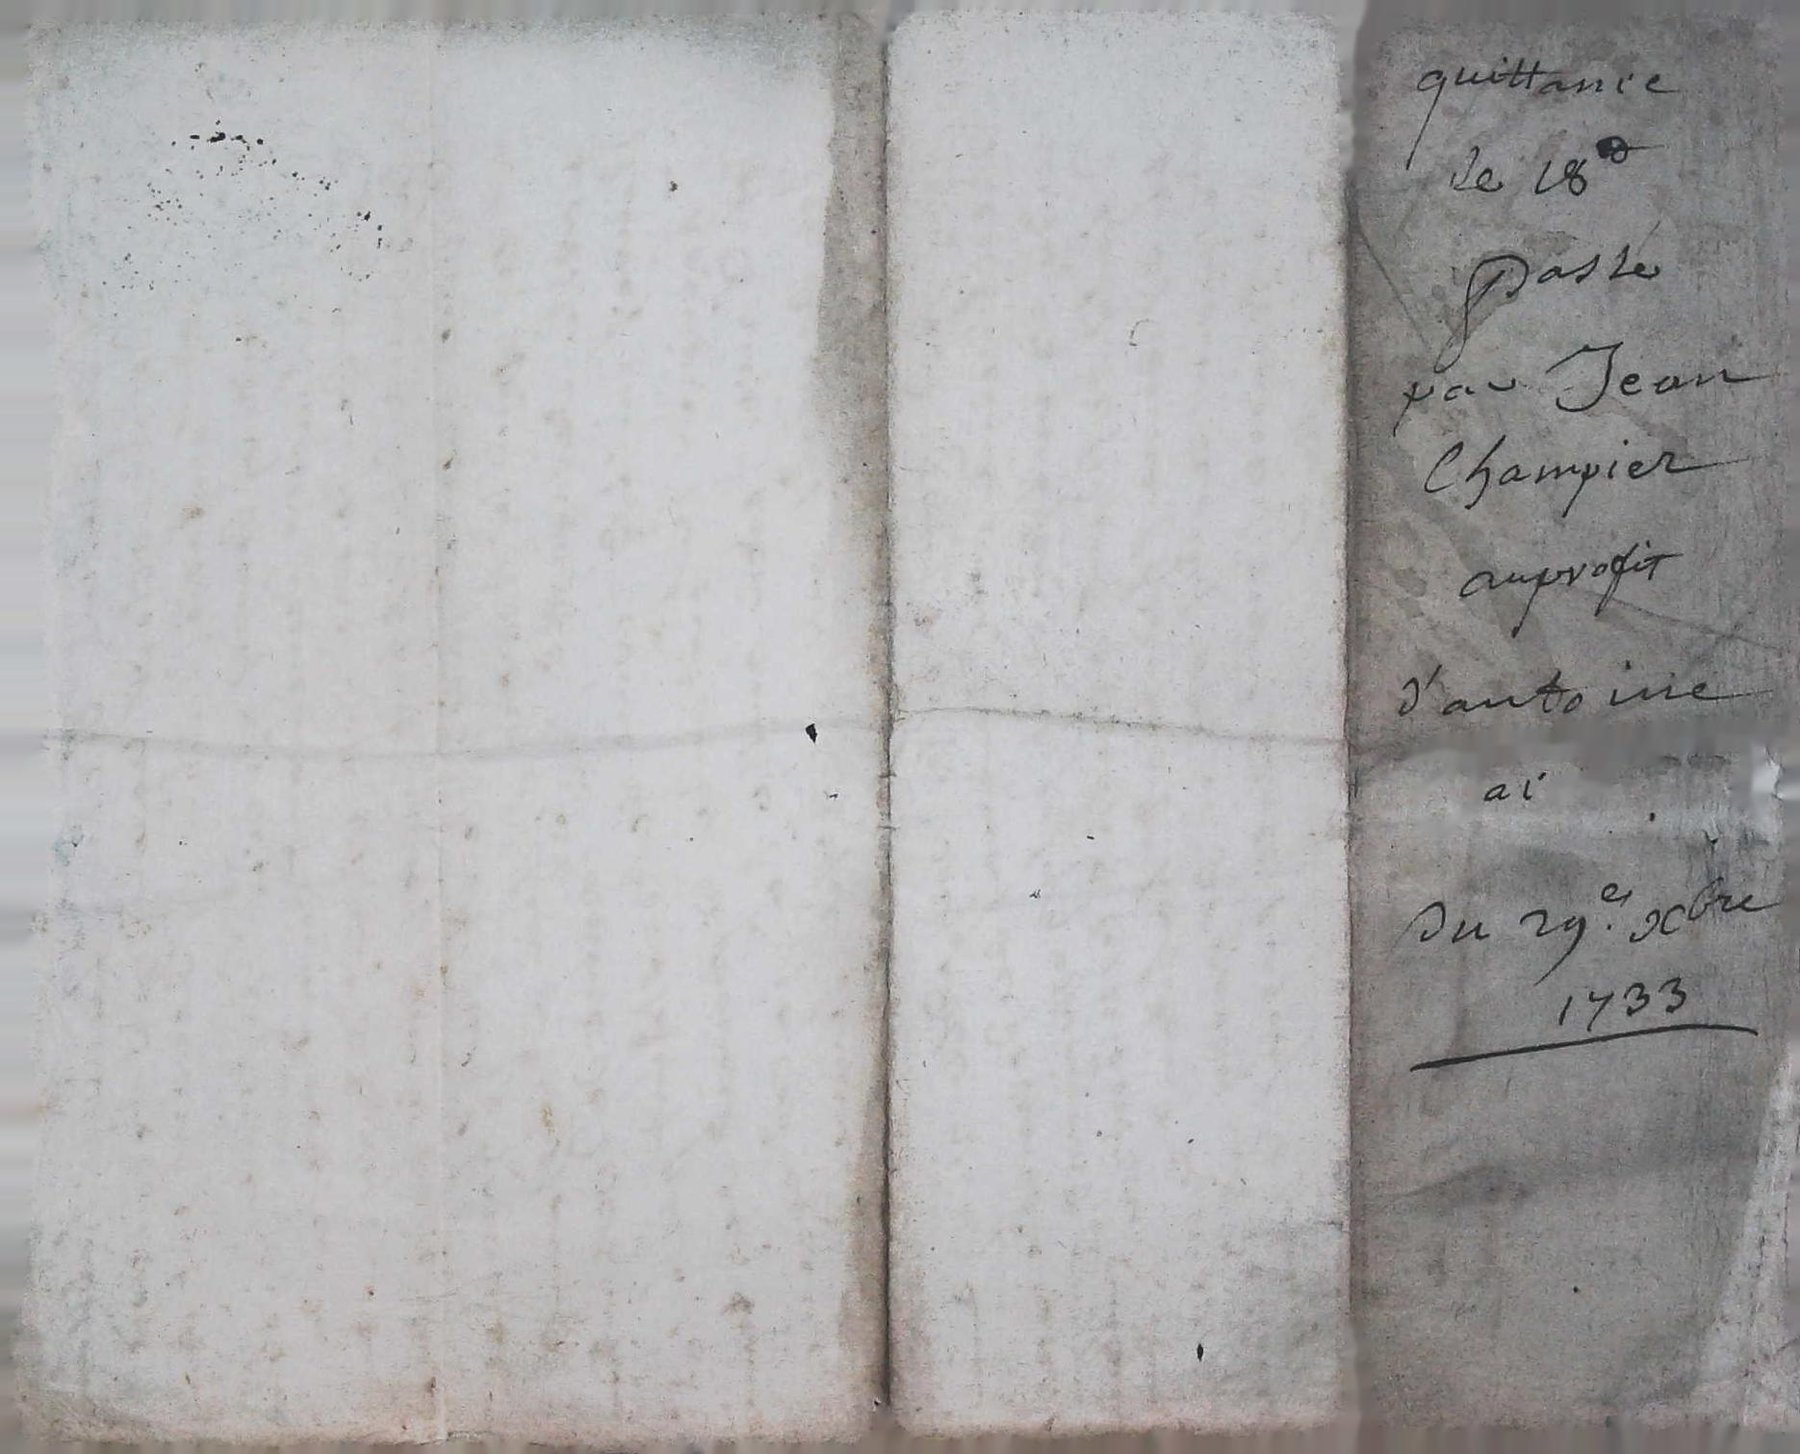 quittance
de 18#
passée
par Jean
Champier
auproffit
d'antoine
ai
Du 29.e xbre
1733